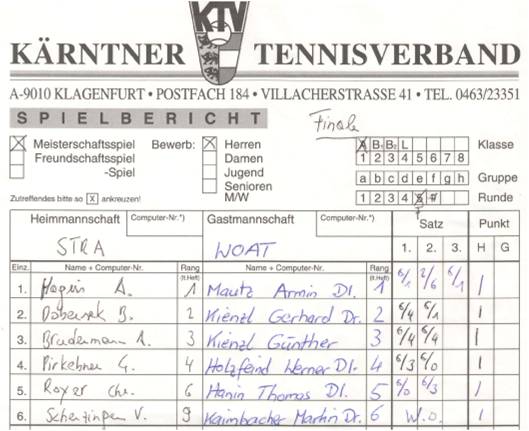 KTV
KÄRNTNER TENNISVERBAND
A-9010 KLAGENFURT • POSTFACH 184 • VILLACHERSTRASSE 41 • TEL. 0463/23351
SPIELBERICHT Finale
X Meisterschaftsspiel Bewerb: X Herren A B1 B2 L Klasse
Freundschaftsspiel Damen 1 2 3 4 5 6 7 8
-Spiel Jugend a b c d e f g h Gruppe
Senioren
Zutreffendes bitte so X ankreuzen! M/W 1 2 3 4 5 Runde
Heimmannschaft Computer-Nr.*) Gastmannschaft Computer-Nr.*) Satz Punkt
STRA WOAT 1. 2. 3. H G
Einz. Name + Computer-Nr. Rang (lt.Heft) Name + Computer-Nr. Rang (lt.Heft)
1. A. 1 Mautz Armin DI. 1 6/1 2/6 6/1 1
2. B. 2 Kienzl Gerhard Dr. 2 6/4 6/1 1
3. Brudermann 3 Kienzl Günther 3 6/4 6/4 1
4. Pirkebner G. 4 Holzfeind Werner DI. 4 6/3 6/0 1
5. Royer Chr. 6 Hanin Thomas DI. 5 6/0 6/3 1
6. V. 9 Kaimbacher Martin Dr. 6 W.O. 1